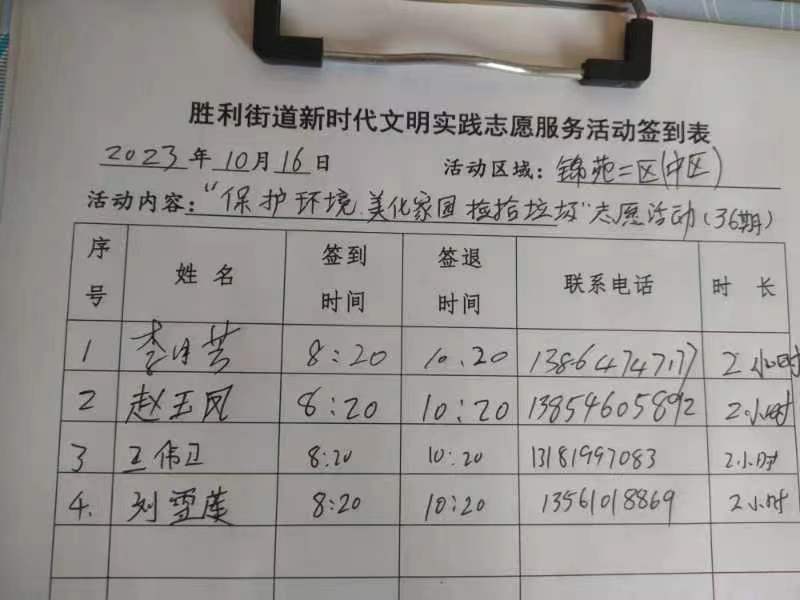 胜利街道新时代文明实践志愿服务活动签到表
2023年10月16日 活动区域：锦苑二区(中区)
活动内容："保护环境.美化家园 捡拾垃圾"志愿活动(36期)
序号 姓名 签到时间 签退时间 联系电话 时长
1 李月芸 8:20 10.20 13864747177 2小时
2 赵玉凤 8:20 10:20 13854605892 2小时
3 王伟卫 8:20 10:20 13181997083 2小时
4. 刘雪莲 8:20 10:20 13561018869 2小时